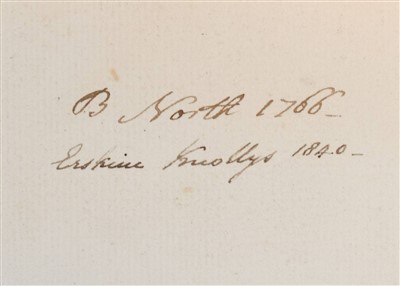 B North 1766-
Erskine Knollys 1840-